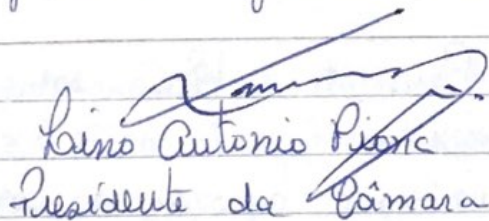 Lino Antonio Pionc
Presidente da Câmara